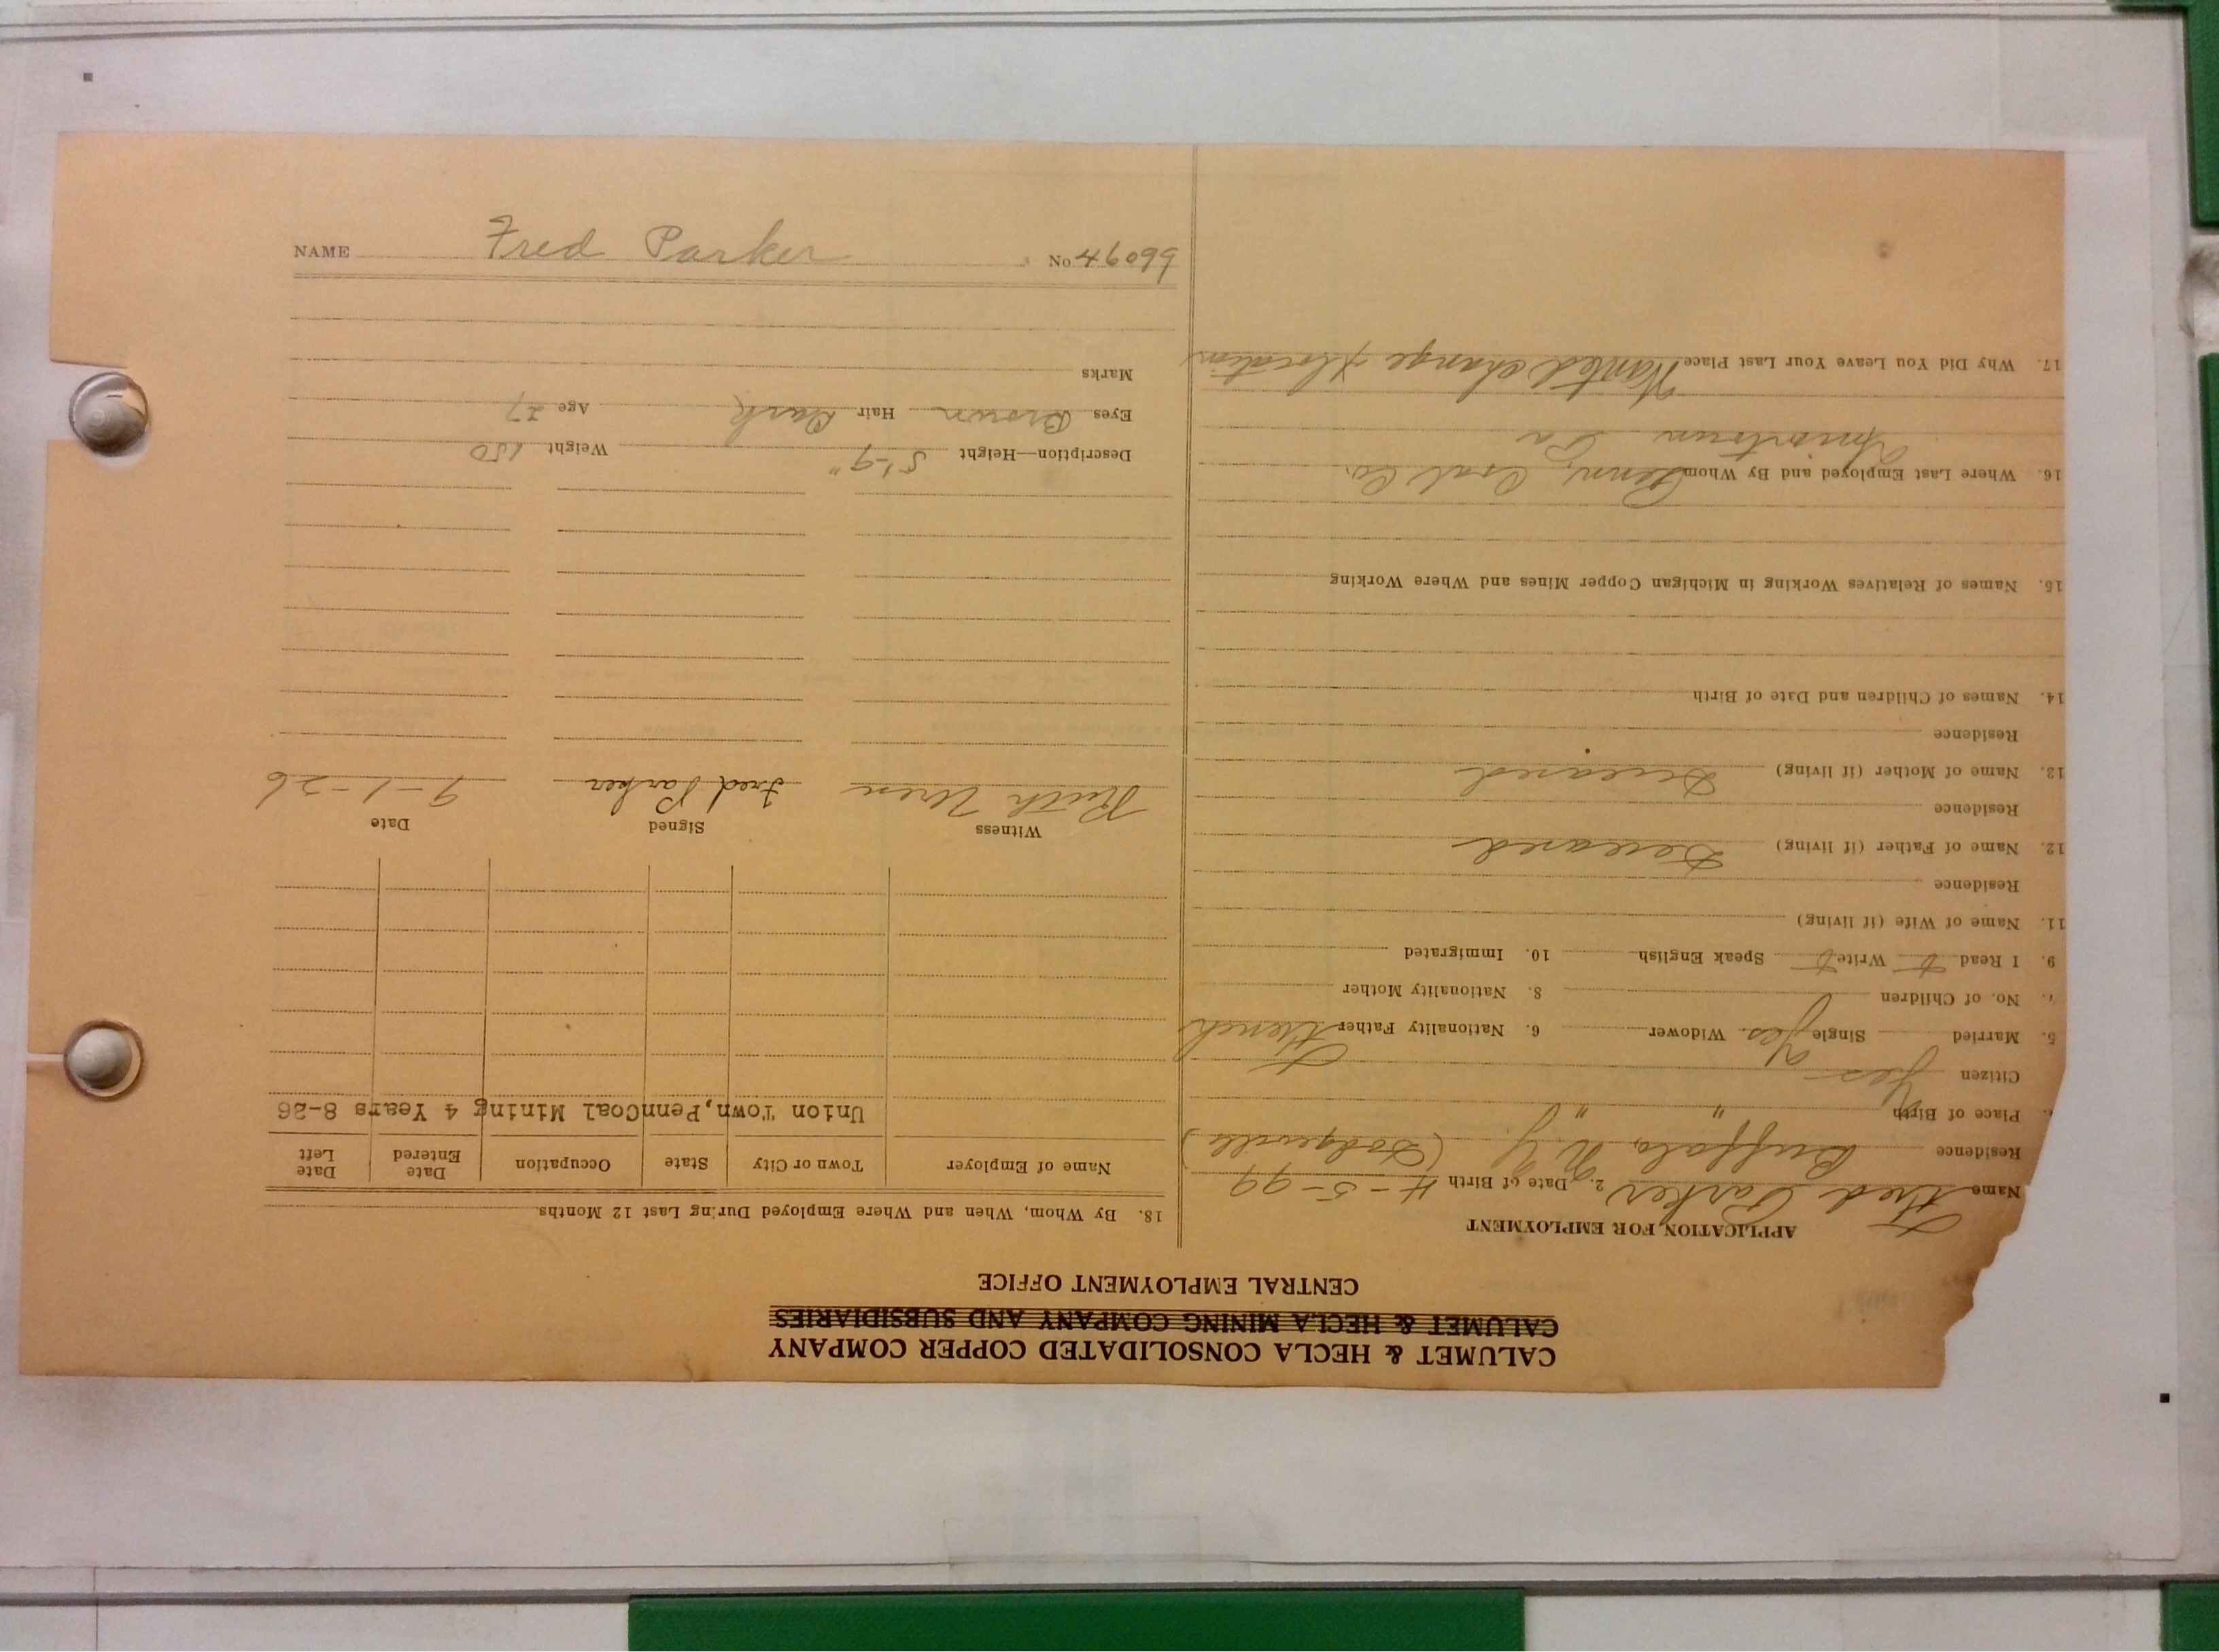 CALUMET & HECLA CONSOLIDATED COPPER COMPANY
CALUMET & HECLA MINING COMPANY AND SUBSIDIARIES
CENTRAL EMPLOYMENT OFFICE
APPLICATION FOR EMPLOYMENT
Name Fred Parker 2. Date of Birth 4-5-99
Residence Buffalo, N.Y. (Dodgeville)
Place of Birth " "
Citizen Yes
5. Married Single Yes. Widower 6. Nationality Father French
No. of Children 8. Nationality Mother
9. I Read Write Speak English 10. Immigrated
11. Name of Wife (if living)
Residence
12. Name of Father (if living) Deceased
Residence
13. Name of Mother (if living) Deceased
Residence
14. Names of Children and Date of Birth
15. Names of Relatives Working in Michigan Copper Mines and Where Working
16. Where Last Employed and By Whom Penn, Coal Co.
Uniontown Pa
17. Why Did You Leave Your Last Place Wanted change of location
18. By Whom, When and Where Employed During Last 12 Months
Name of Employer Town or City State Occupation Date Entered Date Left
Union Town,PennCoal Mining 4 Years 8-26
Witness Signed Date
Ruth Uren Fred Parker 9-1-26
Description—Height 5'-9" Weight 150
Eyes Brown Hair Dark Age 27
Marks
NAME Fred Parker No 46099